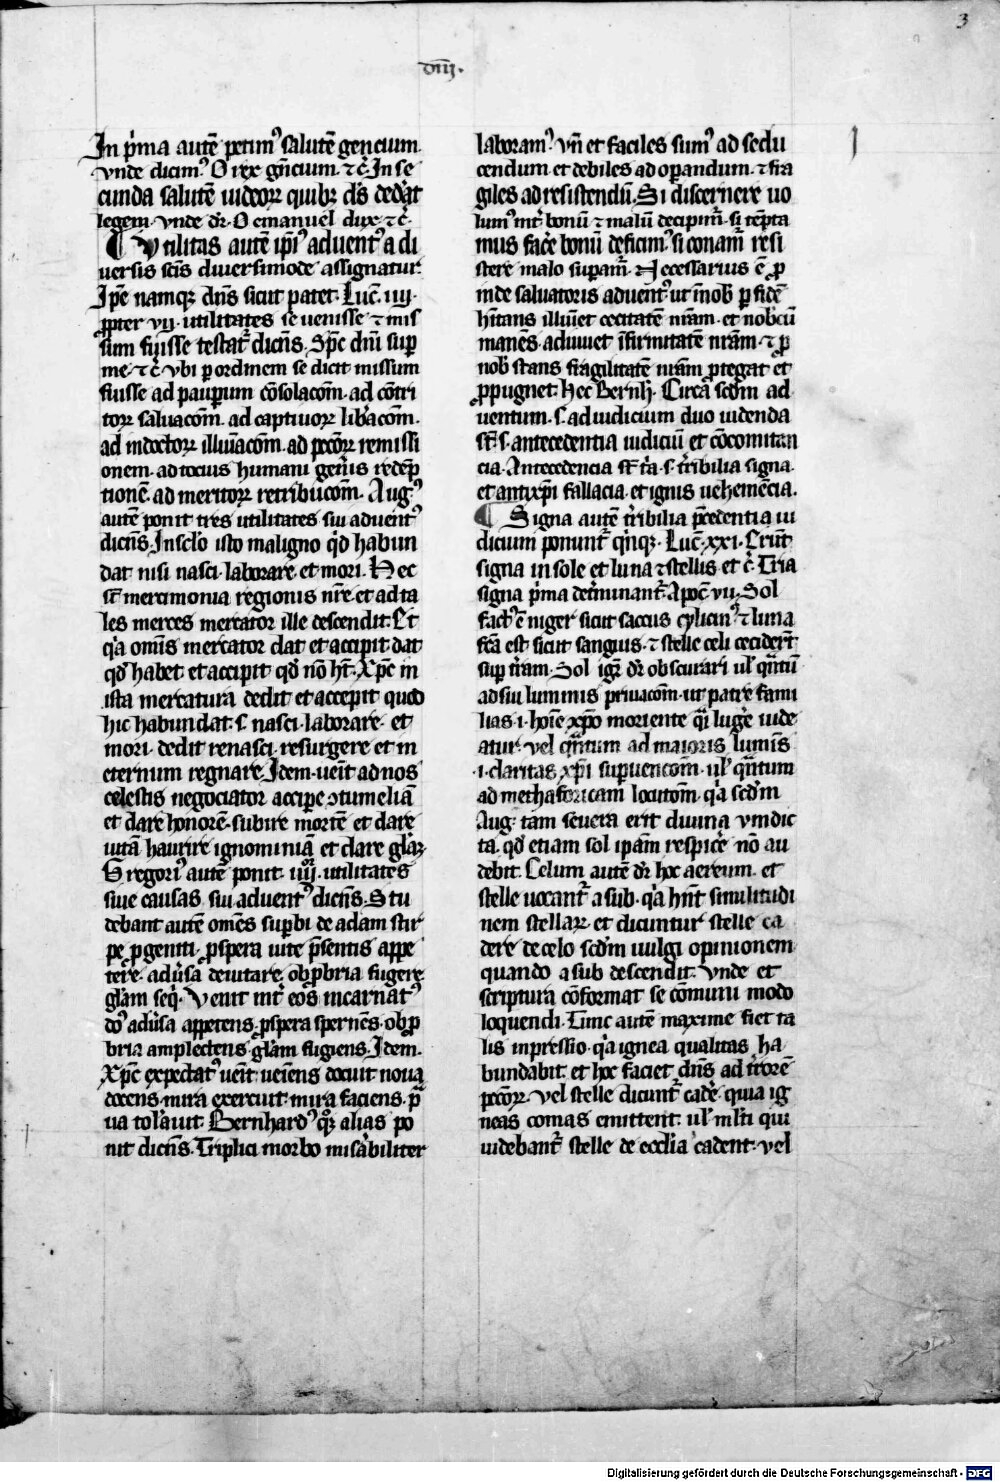 3
dm̄.
In p̓ma autē petim⁹ salutē gencium.
vnde dicim⁹. O rex gn̄cium. ⁊ c̄. In se
cunda salutē iudeoꝝ quibꝫ d̓s ded̓at
legem. vnde d̓r. O emanuel dux ⁊ c̄.
¶ Vtilitas autē ip̄i⁹ aduent⁹ a di
uersis sc̄is diuersimode assignatur.
Ip̄e namqꝫ dn̄s sicut patet. Luc̄. iiij.
ꝓpter vij. utilitates se uenisse ⁊ mis
sum fuisse testat᷑ dicēs. Sp̄c dn̄i sup
me. ⁊ c̄. vbi ꝑ ordinem se dicit missum
fuisse ad paupum cōsolacōm. ad cōtri
toꝝ saluacōm. ad captiuoꝝ lib̓acōm.
ad indoctoꝝ illuīacōm. ad pccōꝝ remissi
onem. ad tocius humani gen̓is redēp
tionē. ad meritoꝝ retribucōm. Aug⁹
autē ponit tres utilitates sui aduent⁹
dicēs. In sclo isto maligno q̓d habun
dat nisi nasci. laborare. et mori. Hec
st̄ mercimonia regionis nr̄e. et ad ta
les merces mercator ille descendit. Et
q̓a omīs mercator dat et accipit. dat
qd̓ habet et accipit qd̓ nō ht̄. Xp̄c in
ista mercatura dedit et accepit quod
hic habundat. s. nasci. laborare. et
mori. dedit renasci. resurgere et in
eternum regnare. Idem. ueīt ad nos
celestis negociator accipe ↄtumeliā
et dare honorē. subire mortē et dare
uitā haurire ignominiā et dare gl̓aꝫ
Gregori⁹ autē ponit. iiij. utilitates
siue causas sui aduent⁹ dicēs. Stu
debant autē omēs supbi de adam stir
pe ꝓgeniti. ꝓspera uite p̄sentis appe
tere. adu̓sa deuitare. obꝓbria fugere
gl̓am seq̓. Venit int̓ eos incarnat⁹
do⁹ adu̓sa appetens. ꝓspera spernēs. obꝓ
bria amplectens. gl̓am fugiens. Idem.
Xp̄c expectat⁹ ueīt. ueīens docuit noua
docens. mira exercuit. mira faciens. p̄
ua tol̓auit. Bernhard⁹ q̊ꝫ alias po
nit dicēs. Triplici morbo mis̓abiliter
laboram⁹. Vn̄ et faciles sum⁹ ad sedu
cendum et debiles ad oꝑandum. ⁊ fra
giles ad resistendū. Si discernere uo
lum⁹ int̓ bonū ⁊ malū decipim̄. si tēpta
mus fac̓e bonū deficim⁹. si conam̄ resi
stere malo supam̄. Necessarius ē ꝓ
inde saluatoris aduent⁹ ut in nob̓ ꝑ fidē
hītans illuīet cecitatē nr̄am. et nob̓cū
manēs. adiuuet īfirmitatē nr̄am. ⁊ ꝓ
nob̓ stans fragilitatē nr̄am ꝓtegat et
ꝓpugnet. Hec Bernh̓. Circa sc̄dm ad
uentum. s. ad iudicium duo uidenda
sт̄. s. antecedentia iudiciū et cōcomitan
cia. Antecedencia sт̄ t̓a. s. t̓ribilia signa.
et antixp̄i fallacia. et ignis uehemēcia.
¶ Signa autē t̓ribilia p̄cedentia iu
dicium ponunt᷑ q̓nqꝫ. Luc̄. xxi. Erūt
signa in sole et luna ⁊ stellis. et c̄. Tria
signa p̓ma det̓minant᷑. Apoc̄ vij. Sol
fact⁹ ē niger sicut saccus cylicin⁹ ⁊ luna
fc̄a est sicut sanguis. ⁊ stelle celi cecider̄t
sup t̓ram. Sol igr̄ d̓r obscurari ul̓ q̄ntū
ad sui luminis priuacōm. ut patre fami
lias. i. hoīe xp̄o moriente q̓i luge̓ uide
atur. vel q̄ntum ad maioris lumīs
.i. claritas xp̄i superuencōm. ul̓ q̄ntum
ad methaforicam locutōm. q̓a sc̄dm
Aug. tam seuera erit diuina vindic
ta. qd̓ etiam sol ipām respic̓e nō au
debit. Celum autē d̓r hoc aereum. et
stelle uocant᷑ a sub. q̓a hn̄t similitudi
nem stellaꝝ. et dicuntur stelle ca
dere de celo sc̄dm uulgi opinionem
quando a sub descendit. Vnde et
scriptura cōformat se cōmuni modo
loquendi. Tunc autē maxime fiet ta
lis inpressio. q̓a ignea qualitas ha
bundabit. et hoc faciet dn̄s ad t̓rorē
pccōꝝ. vel stelle dicunt᷑ cade̓. quia ig
neas comas emittent. ul̓ ml̓ti qui
uidebant᷑ stelle de eccl̓ia cadent. vel
Digitalisierung gefördert durch die Deutsche Forschungsgemeinschaft - DFG